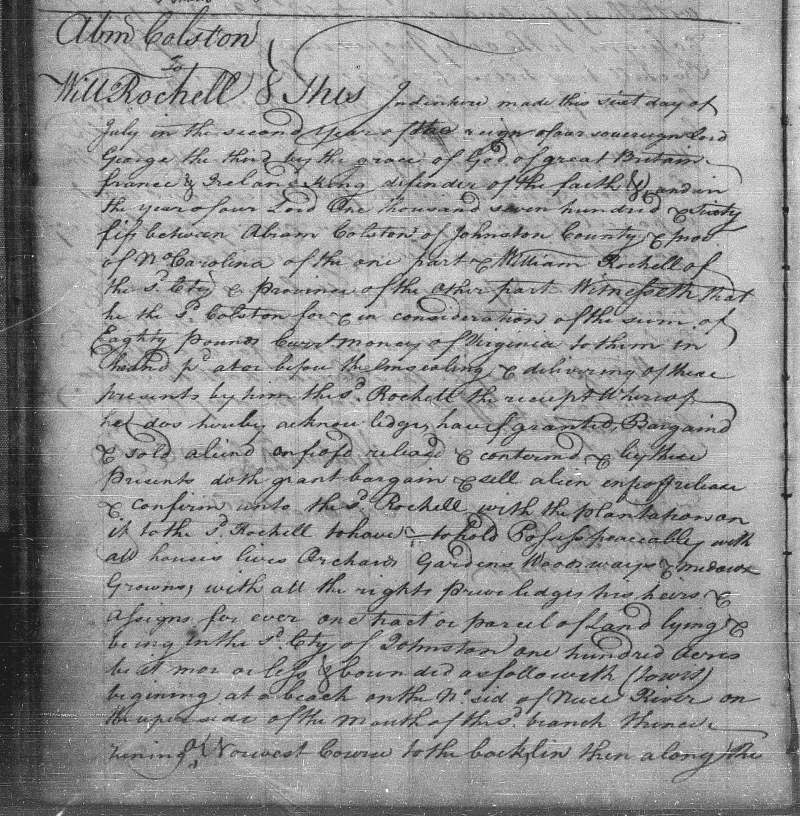 Abm Colston
To
Will Rochell } & This Indenture made this sixt day of
July in the second year of the reign of our sovereign lord
George the third by the grace of God of great Britain
france & Ireland King definder of the faith &c, and in
the year of our Lord One thousand seven hundred & Sixty
fif between Abram Colston of Johnston County & prov
of No Carolina of the one part & William Rochell of
the sd. Cty & province of the other part Witnesseth that
he the sd. Colston for & in consideration of the sum of
Eighty pounds Currt money of Virginia to them in
hand pd at or before the ensealing & delivering of these
presents by him the sd. Rochell the receipt Whereof
he dos hereby acknowledge, have granted, Bargaind
& sold aliend enfeofd relisad & conformd & by these
Presents doth grant bargain & sell alien enfeoff release
& confirm unto the sd. Rochell with the plantation on
it to the sd. Rochell to have & to hold Posess peaceably with
all houses Orchards Gardens Woods ways & medows
Growns, with all the rights Priveledges his heirs &
Assigns for ever one tract or parcel of Land lying &
being in the sd. Cty of Johnston one hundred Acres
be it mor or less & bounded as followith (towit)
begining at a beach on the No. sid of Nuce River on
the uper side of the mouth of the sd. branch thence
runing Norwest Course to the back lin then along the